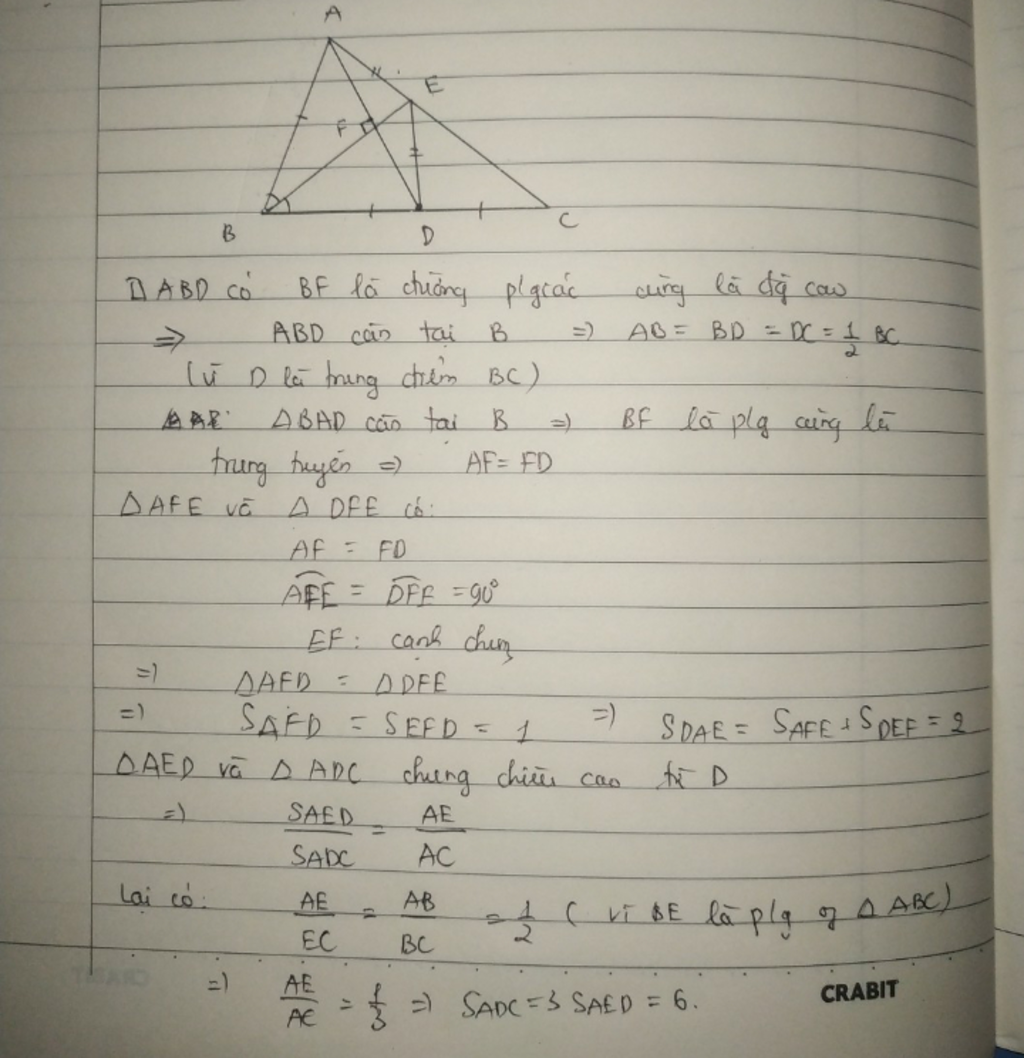 A
E
F
B
D
C
Δ ABD có BF là đường p/giác cũng là đg cao
=> ABD cân tại B => AB = BD = DC = 1/2 BC
(vì D là trung điểm BC)
ΔBAD cân tại B => BF là p/g cũng là
trung tuyến => AF = FD
ΔAFE và Δ DFE có:
AF = FD
AFE = DFE = 90°
EF: cạnh chung
=> ΔAFD = ΔDFE
=> SAFD = SEFD = 1 => SDAE = SAFE + SDEF = 2
ΔAED và Δ ADC chung chiều cao từ D
=> SAED/SADC = AE/AC
Lại có: AE/EC = AB/BC = 1/2 ( vì BE là p/g of Δ ABC)
=> AE/AC = 1/3 => SADC = 3 SAED = 6.
CRABIT